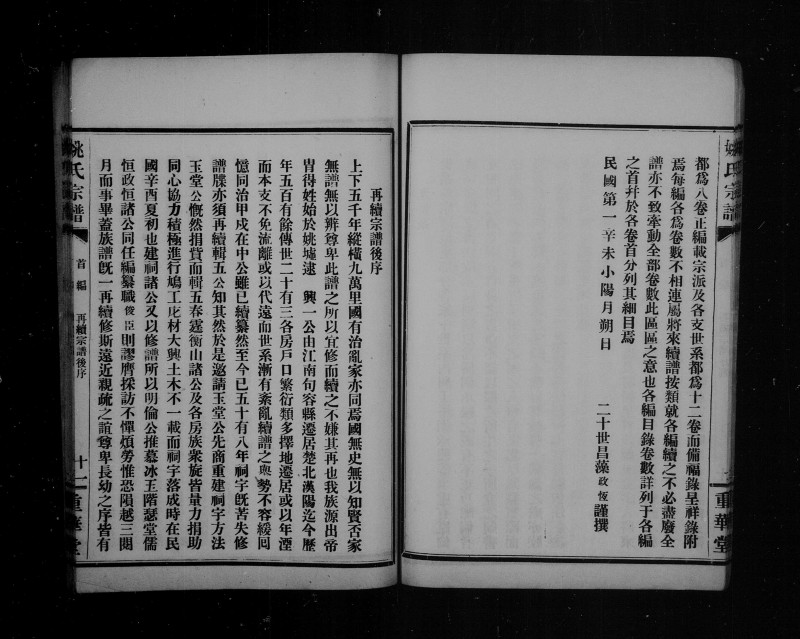 姚氏宗譜
重華堂
都爲八卷正編載宗派及各支世系都爲十二卷而備福錄呈祥錄附
焉每編各爲卷數不相連屬將來續譜按類就各編續之不必盡廢全
譜亦不致牽動全部卷數此區區之意也各編目錄卷數詳列于各編
之首幷於各卷首分列其細目焉
民國第一辛未小陽月朔日
二十世昌藻政恆謹撰
再續宗譜後序
上下五千年縱橫九萬里國有治亂家亦同焉國無史無以知賢否家
無譜無以辨尊卑此譜之所以宜修而續之不嫌其再也我族源出帝
胄得姓始於姚墟逮 興一公由江南句容縣遷居楚北漢陽迄今歷
年五百有餘傳世二十有三各房戶口繁衍類多擇地遷居或以年湮
而本支不免流離或以代遠而世系漸有紊亂續譜之舉勢不容緩囘
憶同治甲戌在中公雖已續纂然至今已五十有八年祠宇旣苦失修
譜牒亦須再續輯五公知其然於是邀請玉堂公先商重建祠宇方法
玉堂公慨然捐貲而輯五春霆衡山諸公及各房族衆旋皆量力捐助
同心協力積極進行鳩工庀材大興土木不一載而祠宇落成時在民
國辛酉夏初也建祠諸公又以修譜所以明倫公推慕冰玉階瑟堂儒
恒政恒諸公同任編纂職俊臣則謬膺採訪不憚煩勞惟恐隕越三閱
月而事畢蓋族譜旣一再續修斯遠近親疏之誼尊卑長幼之序皆有
姚氏宗譜
首編
再續宗譜後序
十一
重華堂